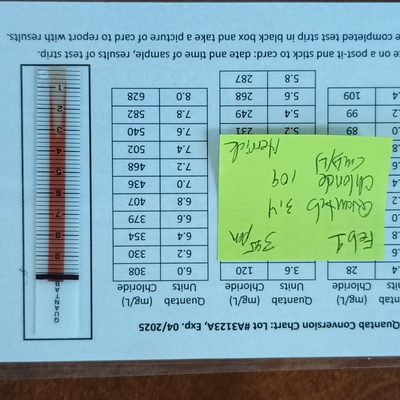 Quantab Conversion Chart: Lot #A3123A, Exp. 04/2025
Chloride (mg/L)
28
89
99
109
Quantab Units Chloride (mg/L)
3.6 120
5.2 231
5.4 249
5.6 268
5.8 287
Quantab Units Chloride (mg/L)
6.0 308
6.2 330
6.4 354
6.6 379
6.8 407
7.0 436
7.2 468
7.4 502
7.6 540
7.8 582
8.0 628
Feb 1 3:45 pm
Quantab 3.4
Chloride 109
(mg/L)
Herrick
QUANTAB
9
8
7
6
5
4
3
2
1
on a post-it and stick to card: date and time of sample, results of test strip.
completed test strip in black box and take a picture of card to report with results.